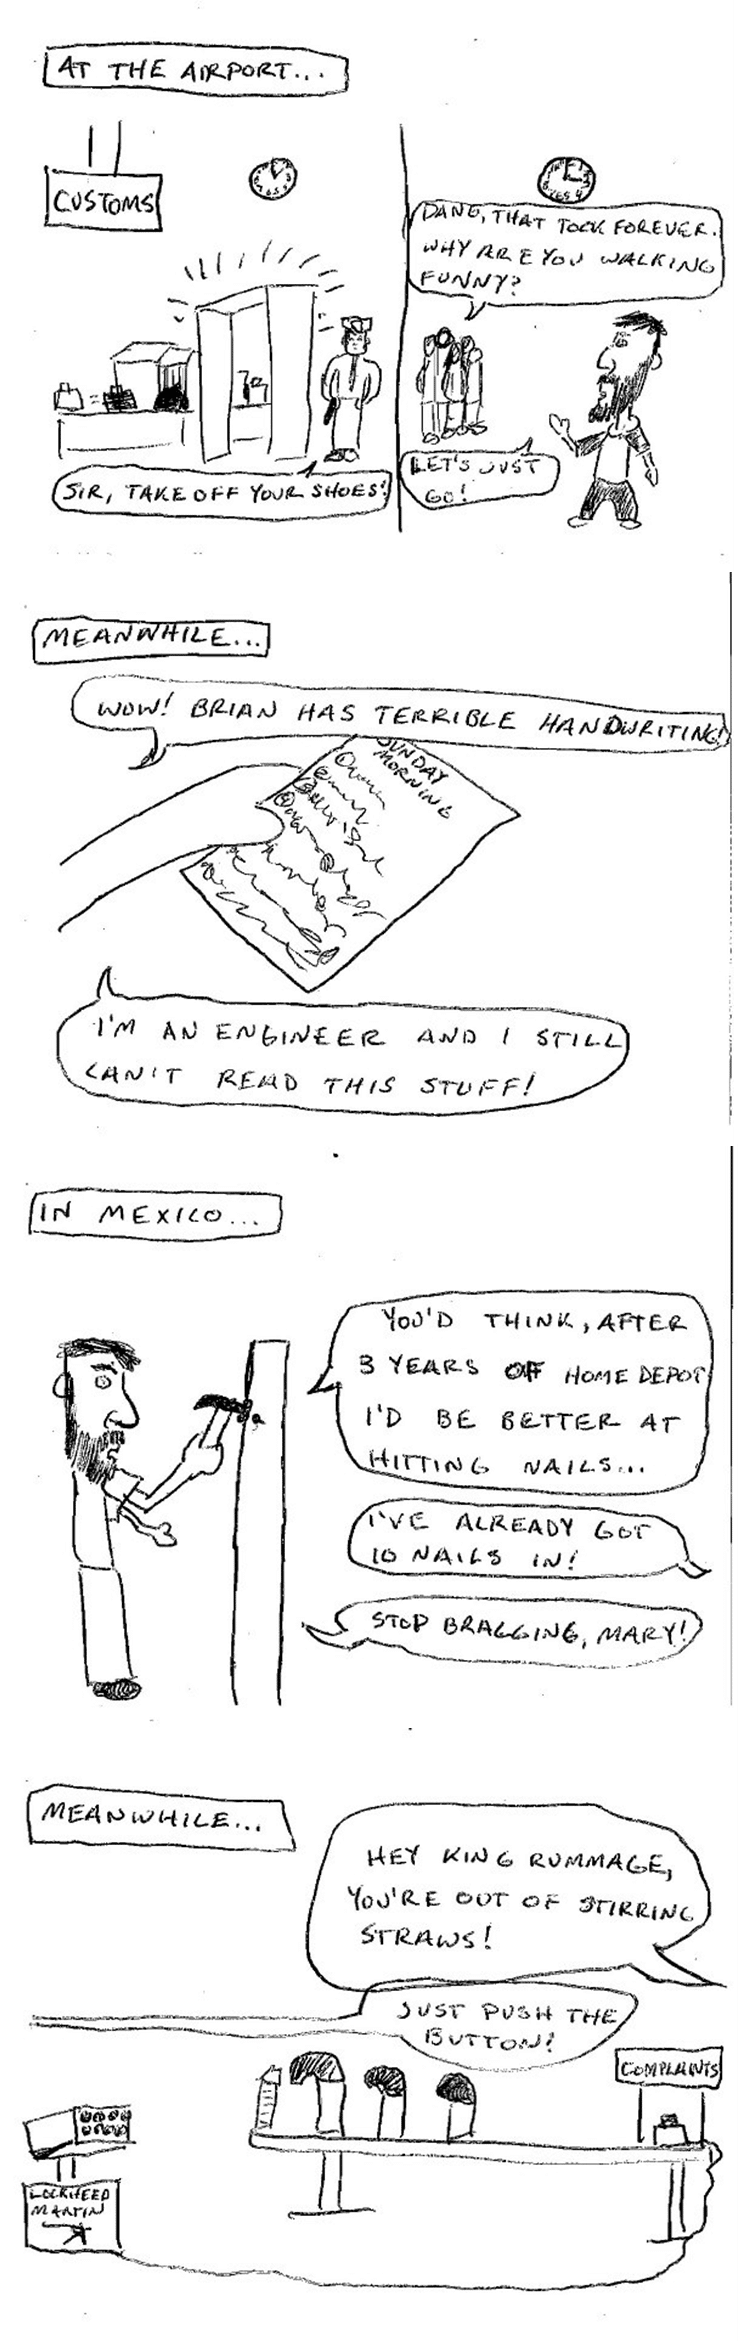 AT THE AIRPORT...
CUSTOMS
SIR, TAKE OFF YOUR SHOES!
DANG, THAT TOOK FOREVER.
WHY ARE YOU WALKING
FUNNY?
LET'S JUST
GO!
MEANWHILE...
WOW! BRIAN HAS TERRIBLE HANDWRITING!
SUNDAY
MORNING
I'M AN ENGINEER AND I STILL
CAN'T READ THIS STUFF!
IN MEXICO...
YOU'D THINK, AFTER
3 YEARS OFF HOME DEPOT
I'D BE BETTER AT
HITTING NAILS...
I'VE ALREADY GOT
10 NAILS IN!
STOP BRAGGING, MARY!
MEANWHILE...
HEY KING RUMMAGE,
YOU'RE OUT OF STIRRING
STRAWS!
JUST PUSH THE
BUTTON!
COMPLAINTS
LOCKHEED
MARTIN